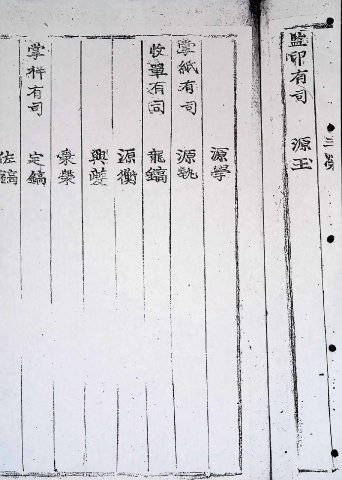 監印有司 源玉
源學
掌紙有司 源執
收單有司 龍鎬
源衡
興夔
秉榮
掌科有司 定鎬
佐鎬